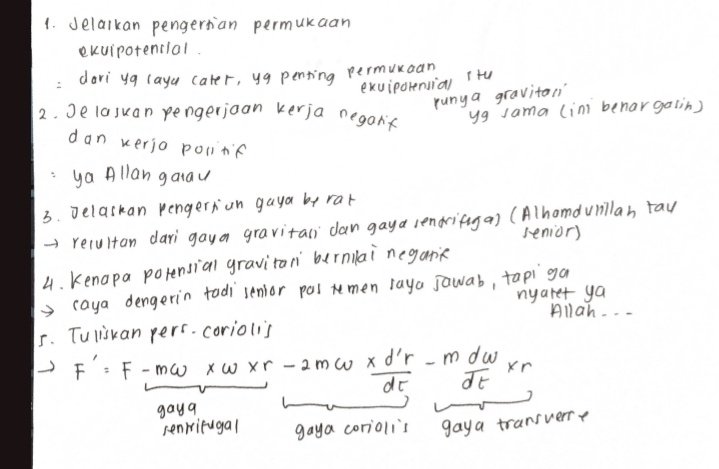 1. Jelaskan pengertian permukaan
ekuipotensial.
: dari yg saya catet, yg penting permukaan ekuipotensial itu
punya gravitasi yg sama (ini benar gasih)
2. Jelaskan pengerjaan kerja negatif
dan kerja positif
: ya Allah gatau
3. Jelaskan pengertian gaya berat
→ resultan dari gaya gravitasi dan gaya sentrifugas) (Alhamdunillah tau
senior)
4. Kenapa potensial gravitasi bernilai negatif
→ saya dengerin tadi senior pas temen saya jawab, tapi ga
nyatet ya
Allah...
5. Tuliskan pers. coriolis
→ F' = F - mω × ω × r - 2mω × d'r/dt - m dω/dt × r
gaya sentrifugal gaya coriolis gaya transverse